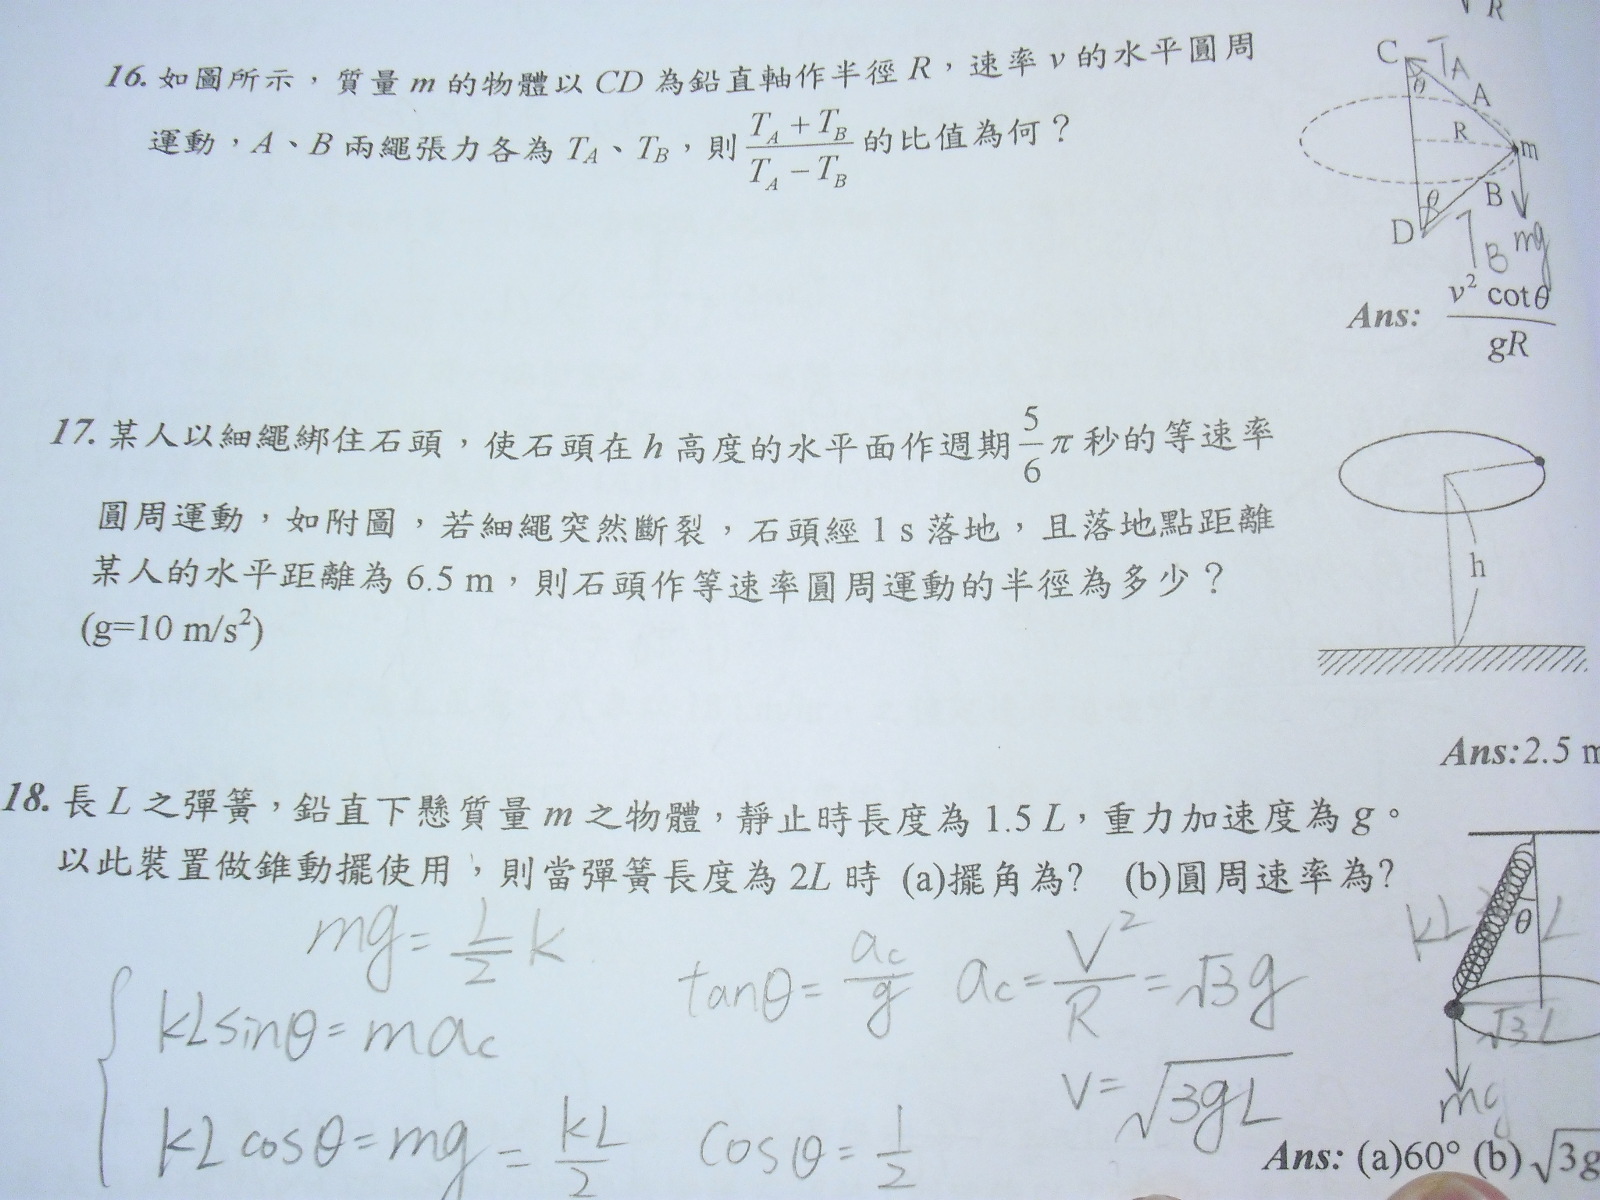 √R
16. 如圖所示，質量 m 的物體以 CD 為鉛直軸作半徑 R，速率 v 的水平圓周
運動，A、B 兩繩張力各為 T_A、T_B，則 (T_A + T_B)/(T_A − T_B) 的比值為何？
C T_A
θ A
R m
θ B
D T_B mg
Ans: v² cotθ / gR
17. 某人以細繩綁住石頭，使石頭在 h 高度的水平面作週期 5/6 π 秒的等速率
圓周運動，如附圖，若細繩突然斷裂，石頭經 1 s 落地，且落地點距離
某人的水平距離為 6.5 m，則石頭作等速率圓周運動的半徑為多少？
(g=10 m/s²)
h
Ans:2.5 m
18. 長 L 之彈簧，鉛直下懸質量 m 之物體，靜止時長度為 1.5 L，重力加速度為 g。
以此裝置做錐動擺使用，則當彈簧長度為 2L 時 (a)擺角為? (b)圓周速率為?
mg = L/2 k
tanθ = a_c/g a_c = V²/R = √3g
kL sinθ = ma_c
V = √3gL
kL cosθ = mg = kL/2 cosθ = 1/2
kL θ L
√3L
mg
Ans: (a)60° (b) √3g